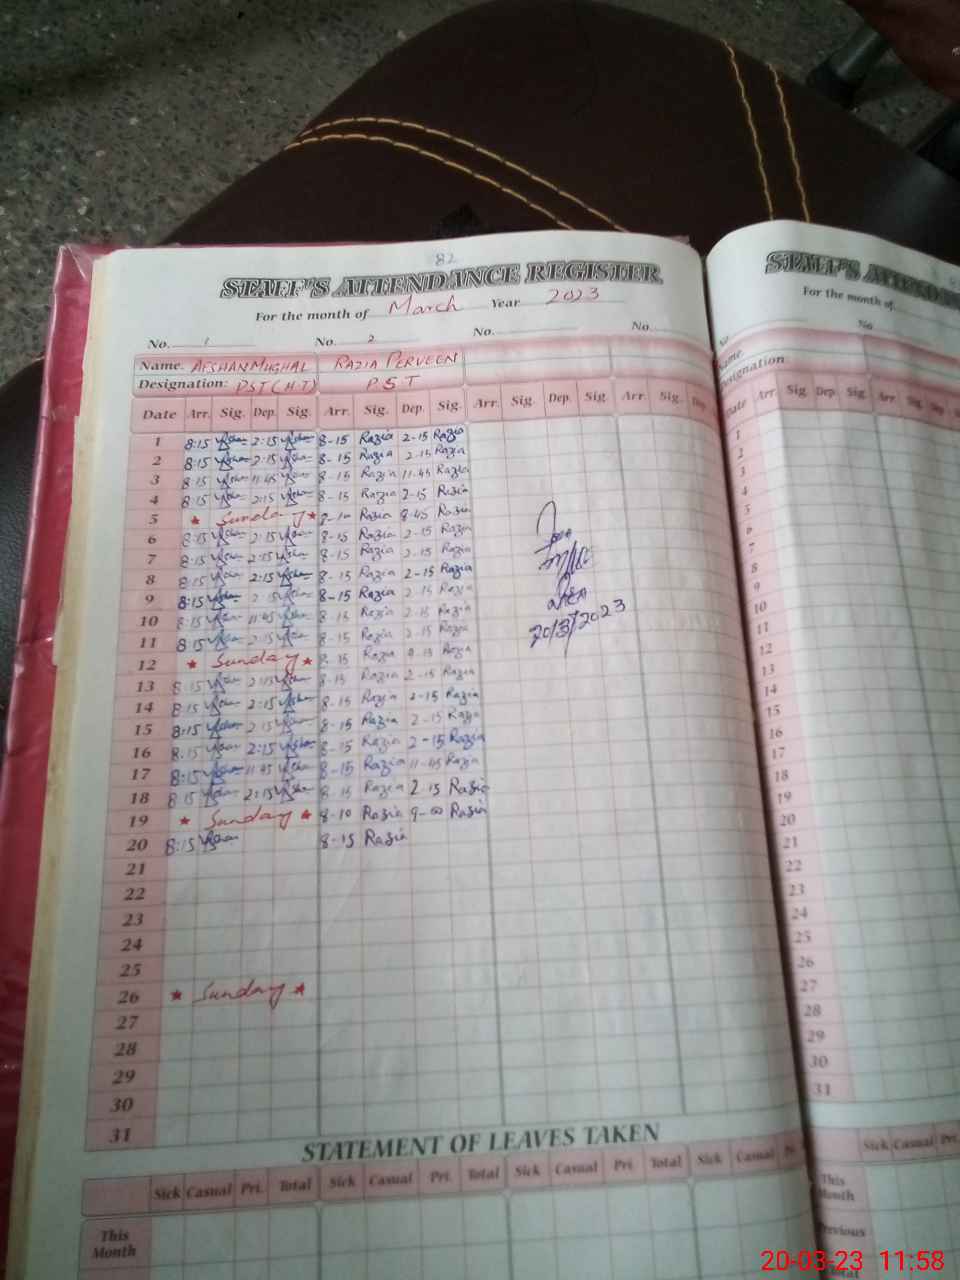 82
STAFF'S ATTENDANCE REGISTER
For the month of March Year 2023
No. 1 No. 2 No. No.
Name. AFSHAN MUGHAL RAZIA PERVEEN
Designation: PST (H.T) P.S T
Date Arr. Sig. Dep. Sig. Arr. Sig. Dep. Sig. Arr. Sig. Dep. Sig. Arr. Sig. Dep.
1 8:15 2:15 8-15 Razia 2-15 Razia
2 8:15 2:15 8-15 Razia 2-15 Razia
3 8:15 11:45 8-15 Razia 11-45 Razia
4 8:15 2:15 8-15 Razia 2-15 Razia
5 * Sunday * 8-10 Razia 8-45 Razia
6 8:15 2:15 8-15 Razia 2-15 Razia
7 8:15 2:15 8-15 Razia 2-15 Razia
8 8:15 2:15 8-15 Razia 2-15 Razia
9 8:15 2:15 8-15 Razia 2-15 Razia
10 8:15 11:45 8-15 Razia 2-15 Razia
11 8:15 2:15 8-15 Razia 2-15 Razia
12 * Sunday * 8-15 Razia Razia
13 8:15 2:15 8-15 Razia 2-15 Razia
14 8:15 2:15 8-15 Razia 2-15 Razia
15 8:15 2:15 8-15 Razia 2-15 Razia
16 8:15 2:15 8-15 Razia 2-15 Razia
17 8:15 11:45 8-15 Razia 11-45 Razia
18 8:15 2:15 8-15 Razia 2-15 Razia
19 * Sunday * 8-10 Razia 9-00 Razia
20 8:15 8-15 Razia
21
22
23
24
25
26 * Sunday *
27
28
29
30
31
20/3/2023
STATEMENT OF LEAVES TAKEN
Sick Casual Pri. Total Sick Casual Pri. Total Sick Casual Pri. Total Sick Casual
This Month
STAFF'S
For the month of
No
Name.
Designation:
Arr. Sig. Dep. Sig. Arr. Sig.
1
2
3
4
5
6
7
8
9
10
11
12
13
14
15
16
17
18
19
20
21
22
23
24
25
26
27
28
29
30
31
Sick Casual Pri.
This Month
Previous
Total
20-03-23 11:58